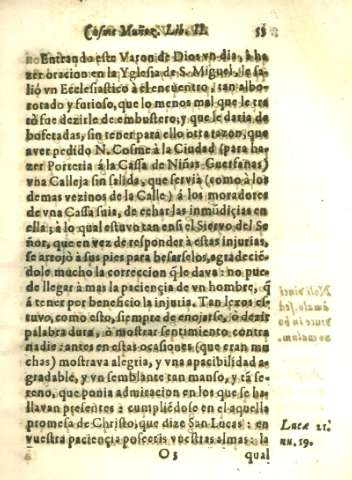 Cosme Muñoz. Lib. II. 53
Entrando este Varon de Dios vn dia, à ha
zer oracion en la Yglesia de S. Miguel, le sa-
liò vn Ecclesiastico à el encuentro, tan albo-
rotado y furioso, que lo menos mal que le tra
tò fue dezirle de embustero; y que le daria de
bofetadas, sin tener para ello otra razon, que
aver pedido N. Cosme à la Ciudad (para ha-
zer Porteria à la Cassa de Niñas Guerfanas)
vna Calleja sin salida, que servia (como à los
demas vezinos de la Calle) à los moradores
de vna Cassa suia, de echar las inmũdicias en
ella; à lo qual estuvo tan en si el Siervo del Se
ñor, que en vez de responder à estas injurias,
se arrojò à sus pies para besarselos, agradeciẽ-
dole mucho la correccion q̃ le dava: no pue-
de llegar à mas la paciencia de vn hombre, q̃
à tener por beneficio la injuria. Tan lexos es-
tuvo, como esto, siempre de enojarse, ò dezir
palabra dura, ò mostrar sentimiento contra
nadie: antes en estas ocasiones (que eran mu
chas) mostrava alegria, y vna apacibilidad a-
gradable, y vn semblante tan manso, y tã se-
reno, que ponia admiracion en los que se ha-
llavan presentes: cumpliẽdose en el aquella
promesa de Christo, que dize San Lucas: en
vuestra paciencia posceris vuestras almas: la
Lucæ 21.
nu. 19.
O3 qual